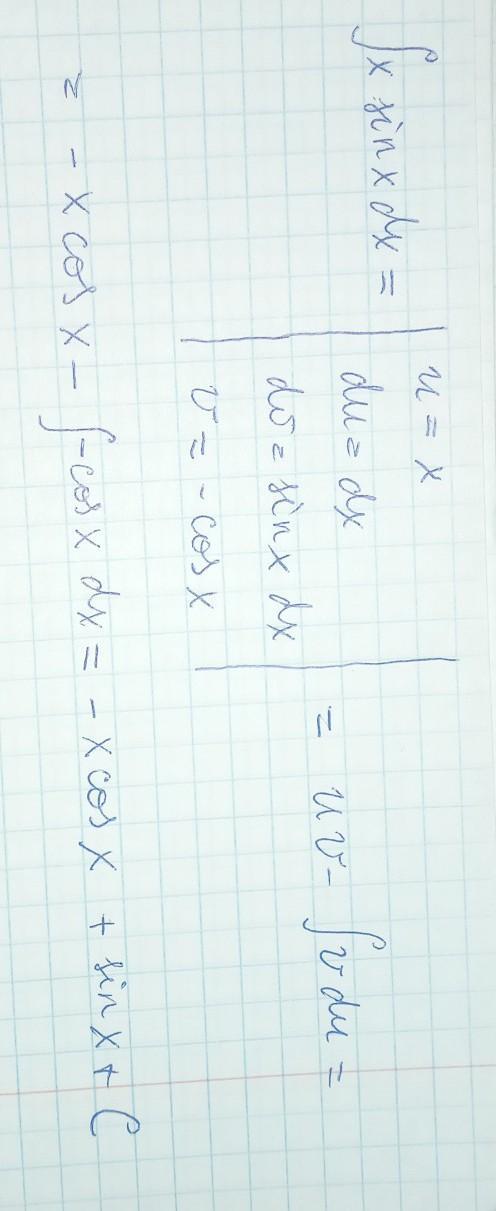 ∫x sin x dx = | u = x
du = dx
dv = sin x dx
v = - cos x | = uv - ∫v du =
= - x cos x - ∫-cos x dx = - x cos x + sin x + C